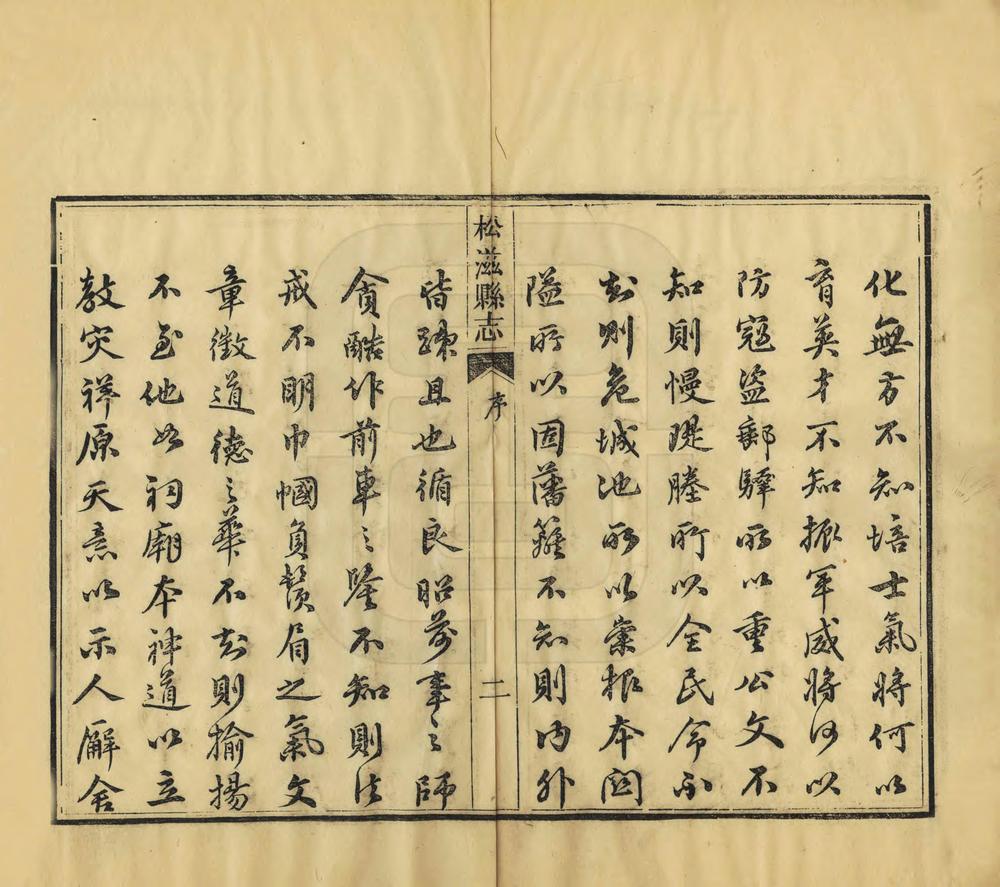 化無方不知培士氣將何以
育英才不知振軍威將何以
防寇盜郵驛所以重公文不
知則慢隄塍所以全民命不
知則危城池所以棠根本關
隘所以固藩籬不知則內外
松滋縣志
序
二
皆疎且也循良昭前事之師
貪酷作前車之鑒不知則法
戒不明巾幗負鬚眉之氣文
章徵道德之華不知則揄揚
不至他如祠廟本神道以立
教灾祥原天意以示人廨舍